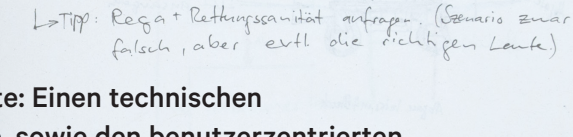 ↳Tipp: Rega + Rettungssanität anfragen. (Szenario zwar
falsch, aber evtl. die richtigen Leute.)
te: Einen technischen
, sowie den benutzerzentrierten